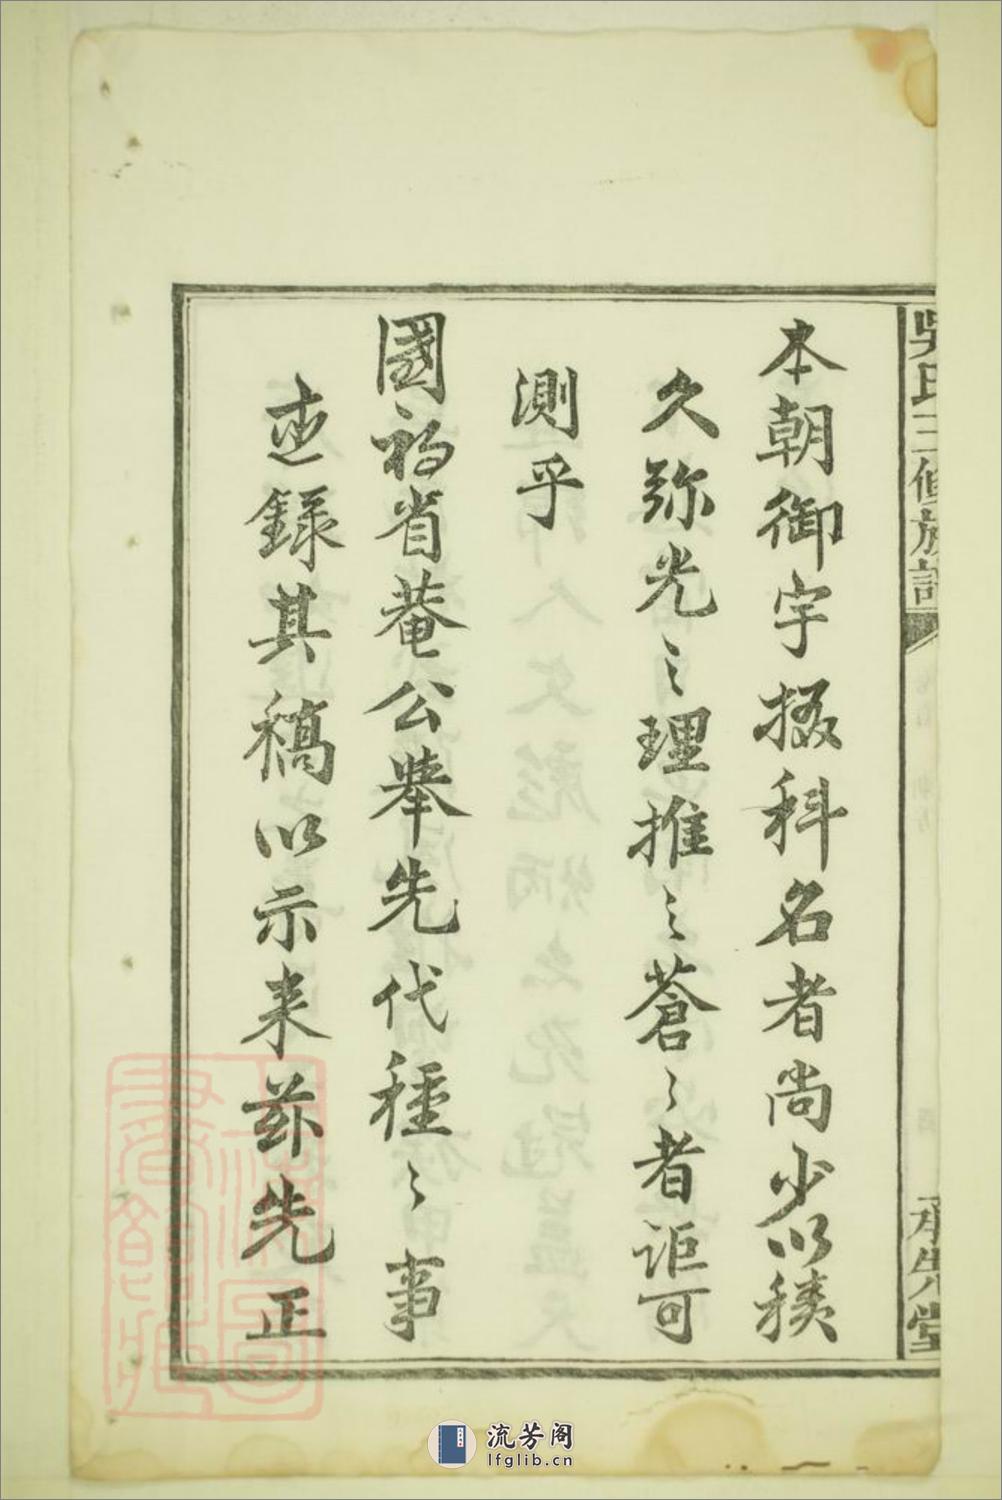 吳氏三修族譜
承先堂
本朝御宇掇科名者尚少以積
久弥光之理推之蒼〻者詎可
測乎
國初省菴公舉先代種〻事
迹錄其稿以示来茲先正
上海圖書館藏
流芳阁
lfglib.cn